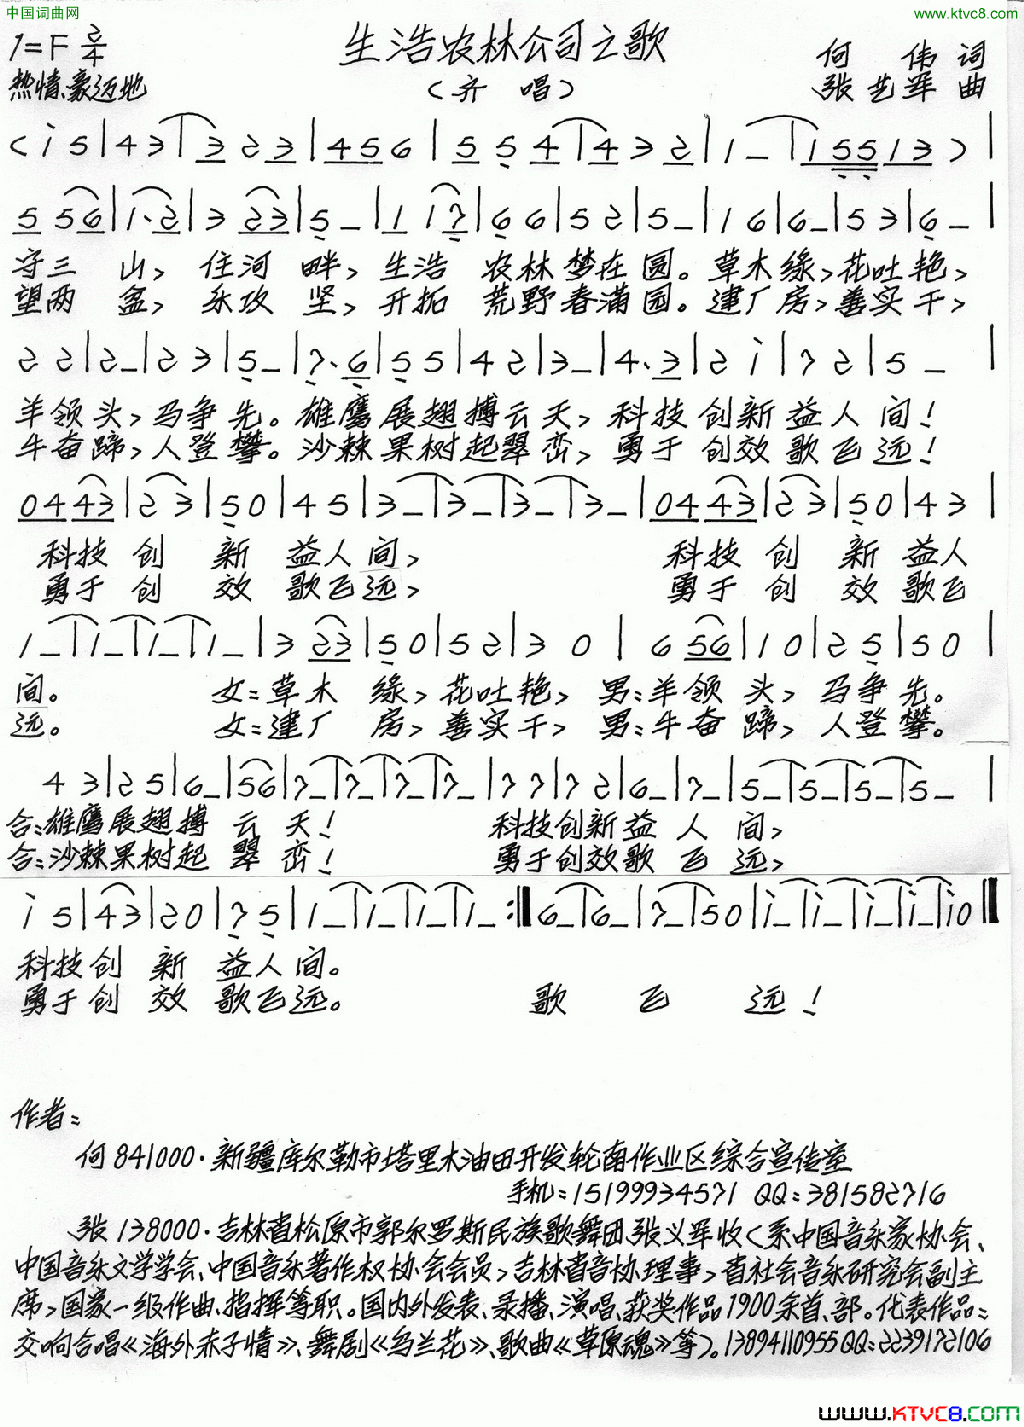 中国词曲网
www.ktvc8.com
1=F 2/4
生浩农林公司之歌
何 伟 词
热情、豪迈地
（齐 唱）
张艺军 曲
守三 山，住河 畔，生浩 农林梦在园。草木缘，花吐艳，
望两 盆，乐攻 坚，开拓 荒野春满园。建厂房，善实干，
羊领头，马争先。雄鹰展翅搏云天，科技创新益人间！
牛奋蹄，人登攀。沙棘果树起翠峦，勇于创效歌飞远！
科技创 新 益人间， 科技创 新 益人
勇于创 效 歌飞远， 勇于创 效 歌飞
间。 女：草木 缘，花吐艳，男：羊领 头，马争先。
远。 女：建厂 房，善实干，男：牛奋 蹄，人登攀。
合：雄鹰展翅搏 云 天！ 科技创新益 人 间，
合：沙棘果树起 翠 峦！ 勇于创效歌 飞 远，
科技创 新 益人间。
勇于创 效 歌飞远。 歌 飞 远！
作者：
何841000·新疆库尔勒市塔里木油田开发轮南作业区综合宣传室
手机：15199934571 QQ：381582716
张138000·吉林省松原市郭尔罗斯民族歌舞团、张义军收（系中国音乐家协会、
中国音乐文学学会、中国音乐著作权协会会员，吉林省音协理事，省社会音乐研究会副主
席，国家一级作曲、指挥等职。国内外发表、录播、演唱、获奖作品1900余首、部。代表作品：
交响合唱《海外赤子情》、舞剧《乌兰花》、歌曲《草原魂》等）。13894110955QQ：2239172106
www.KTVC8.com